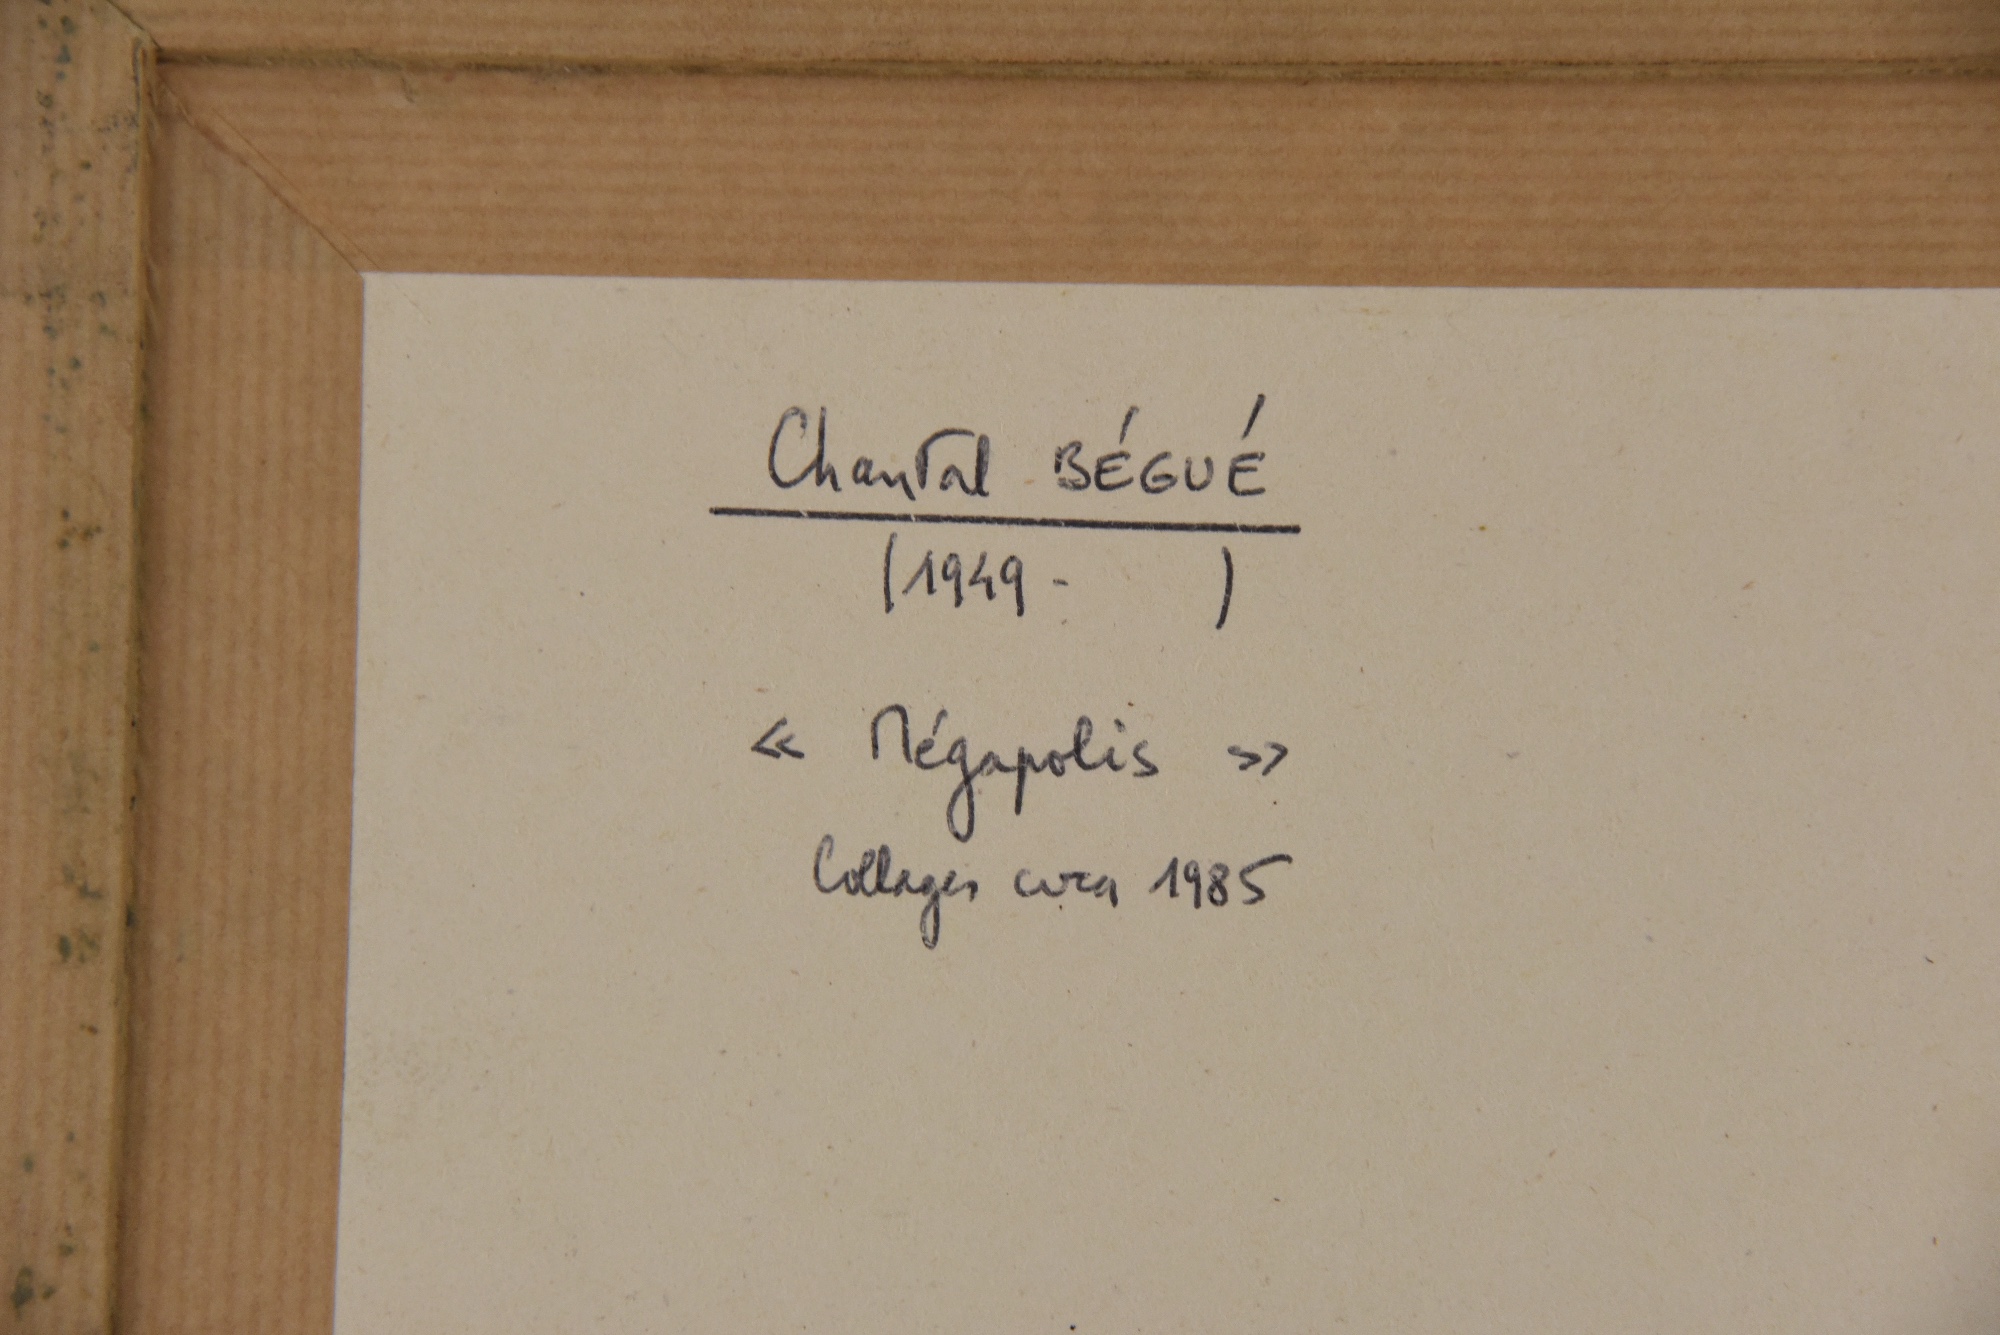 Chantal BÉGUÉ
(1949-     )
« Mégapolis »
Collages circa 1985